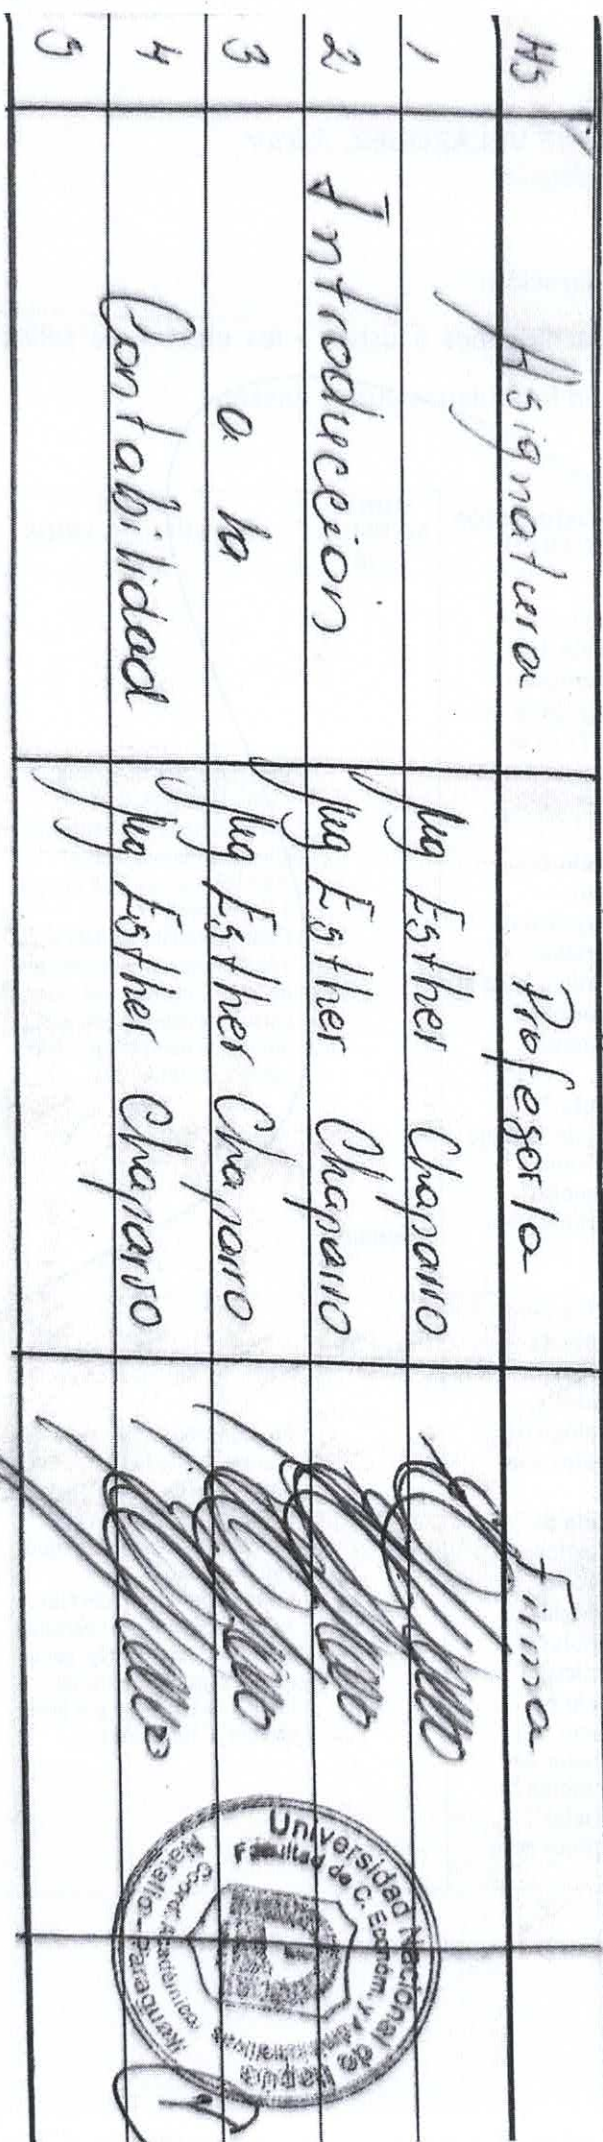 Hs Asignatura Profesor/a Firma
1 Mg Esther Chaparro
2 Introducción Mg Esther Chaparro
3 a la Mg Esther Chaparro
4 Contabilidad Mg Esther Chaparro
5
Universidad Nacional de
Facultad de C. Económ. y
Coord. Académica
Natalio - Paraguay